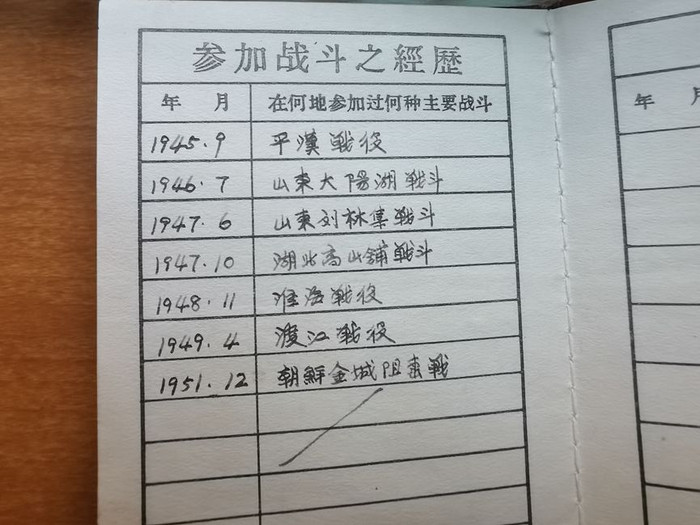 参加战斗之經歷
年 月 在何地参加过何种主要战斗
1945.9 平漢戰役
1946.7 山東大陽湖戰斗
1947.6 山東刘林集戰斗
1947.10 湖北高山鋪戰斗
1948.11 淮海戰役
1949.4 渡江戰役
1951.12 朝鮮金城阻击戰
年 月